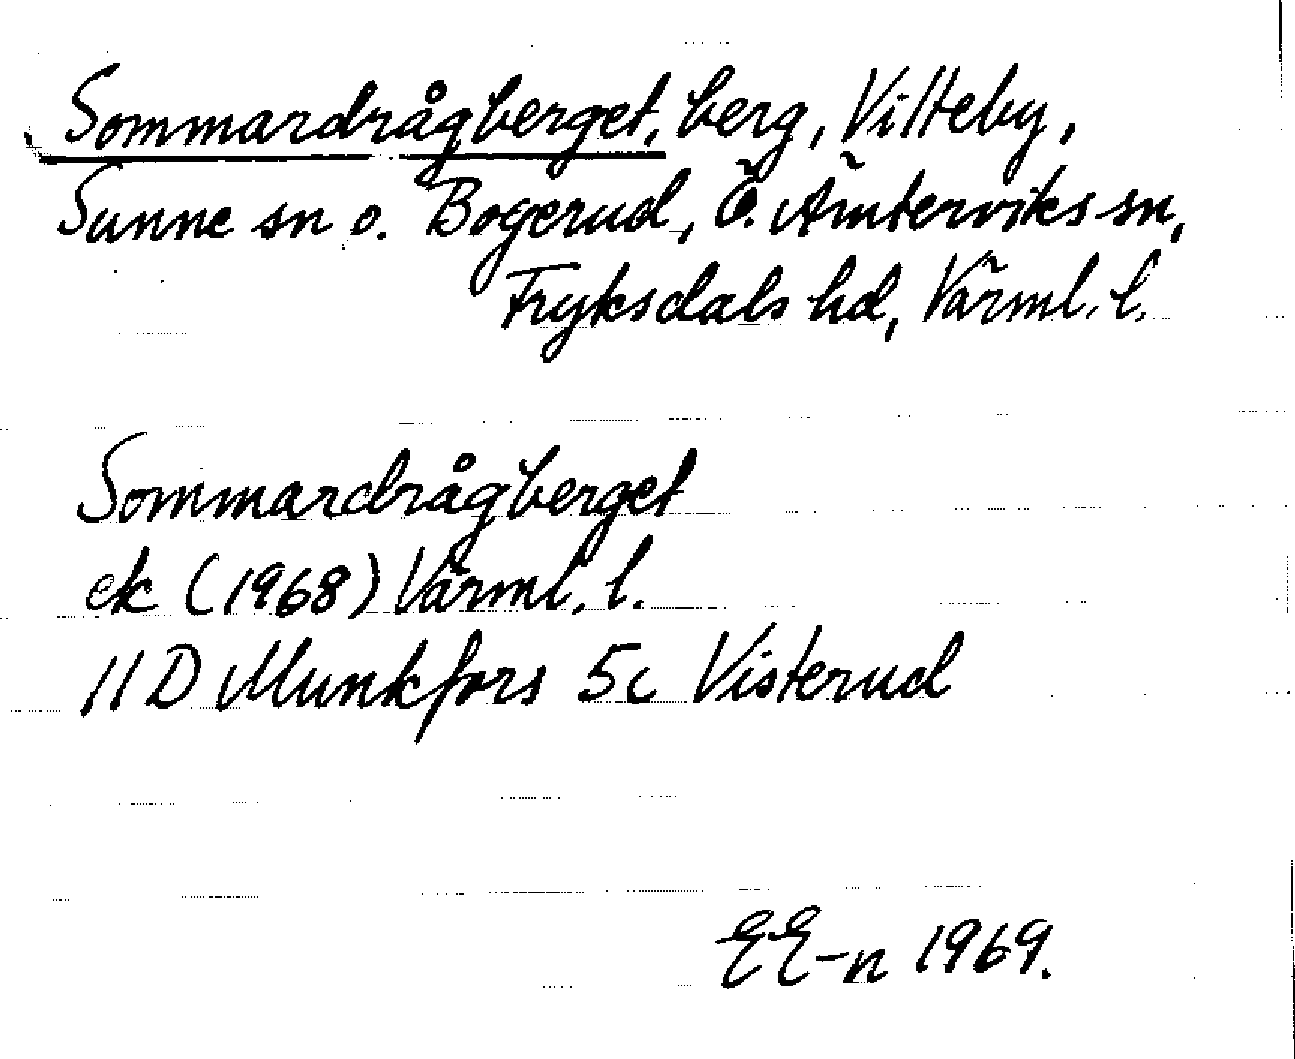 Sommardrågberget, berg, Vilteby,
Sunne sn o. Bogerud, Ö. Ämterviks sn,
Fryksdals hd, Värml. l.
Sommardrågberget
ek (1968) Värml. l.
11D Munkfors 5c Visterud
EE-n 1969.